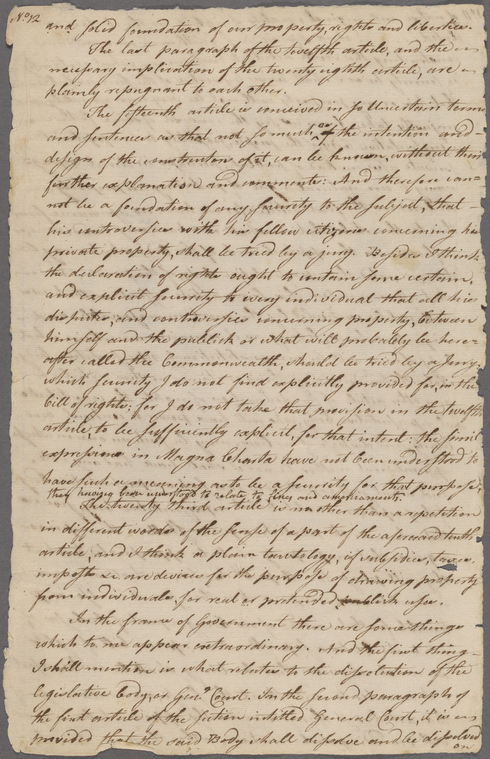 No. 12
and solid foundation of our property, rights and liberties.
The last paragraph of the twelfth article, and the
necessary implication of the twenty eighth article, are
plainly repugnant to each other.
The fifteenth article is conceived in so uncertain terms
and sentences as that not so much as the intention and
design of the construction of it, can be known, without their
further explanation and comments: And therefore can-
not be a foundation of any security to the subject, that
his controversies with his fellow citizens concerning his
private property, shall be tried by a jury. Besides I think
the declaration of rights ought to contain some certain,
and explicit security to every individual that all his
disputes, and controversies concerning property, between
himself and the publick or what will probably be here-
after called the Commonwealth, should be tried by a Jury,
which security I do not find explicitly provided for, in the
bill of rights; for I do not take that provision in the twelfth
article, to be sufficiently explicit, for that intent: the
expressions in Magna Charta have not been understood to
have such a meaning as to be a security for that purpose,
they having been understood to relate, to fines and amerciaments.
The twenty third article is no other than a repetition
in different words of the sense of a part of the aforesaid tenth
article, and I think a plain tautology, if subsidies, taxes,
imposts &c. are devices for the purpose of drawing property
from individuals for real or pretended publick uses.
In the frame of Government there are some things
which to me appear extraordinary. And the first thing
I shall mention is what relates to the dissolution of the
legislative body, or Genl. Court. In the second paragraph of
the first article of the section intitled General Court, it is
provided that the said Body shall dissolve and be dissolved
on